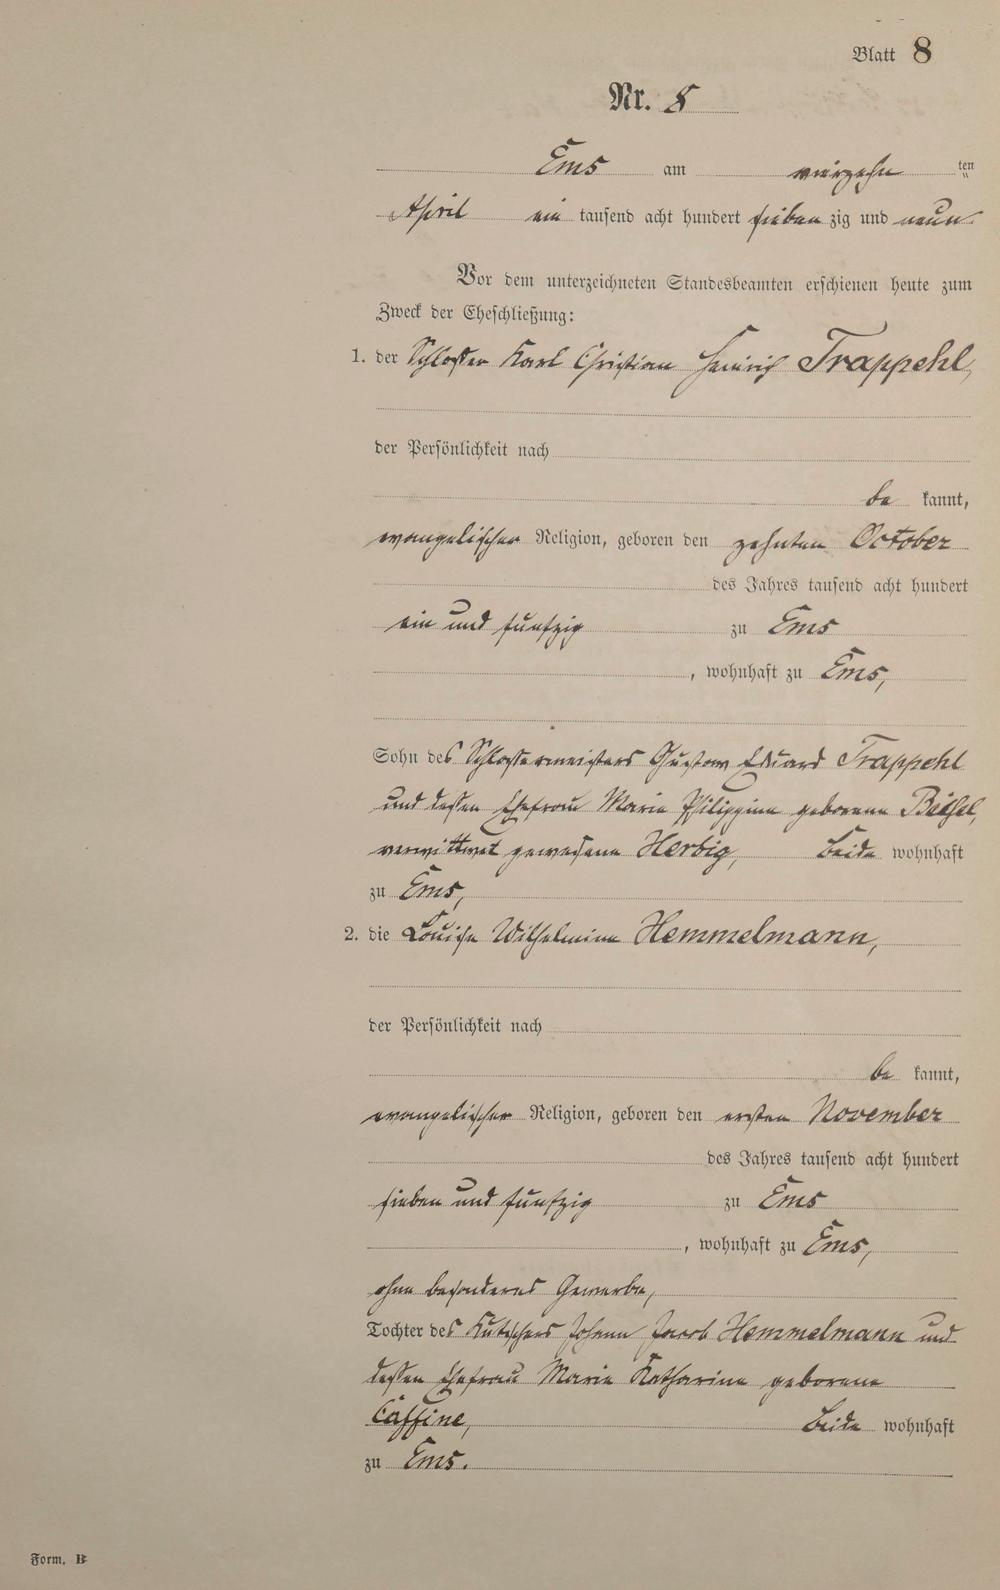 Blatt 8
Nr. 8
Ems am vierzehn ten
April ein tausend acht hundert sieben zig und neun
Vor dem unterzeichneten Standesbeamten erschienen heute zum
Zweck der Eheschließung:
1. der Schlosser Karl Christian Heinrich Trappehl,
der Persönlichkeit nach
be kannt,
evangelischer Religion, geboren den zehnten October
des Jahres tausend acht hundert
ein und fünfzig zu Ems
, wohnhaft zu Ems,
Sohn des Schlossermeisters Gustav Eduard Trappehl
und dessen Ehefrau Marie Philippine geborene
verwittwet gewesene Herbig, beide wohnhaft
zu Ems,
2. die Louise Wilhelmine Hemmelmann,
der Persönlichkeit nach
be kannt,
evangelischer Religion, geboren den ersten November
des Jahres tausend acht hundert
sieben und fünfzig zu Ems
, wohnhaft zu Ems,
ohne besonderes Gewerbe,
Tochter des Kutschers Johann Jacob Hemmelmann und
dessen Ehefrau Marie Katharine geborene
Caffine, beide wohnhaft
zu Ems.
Form. B